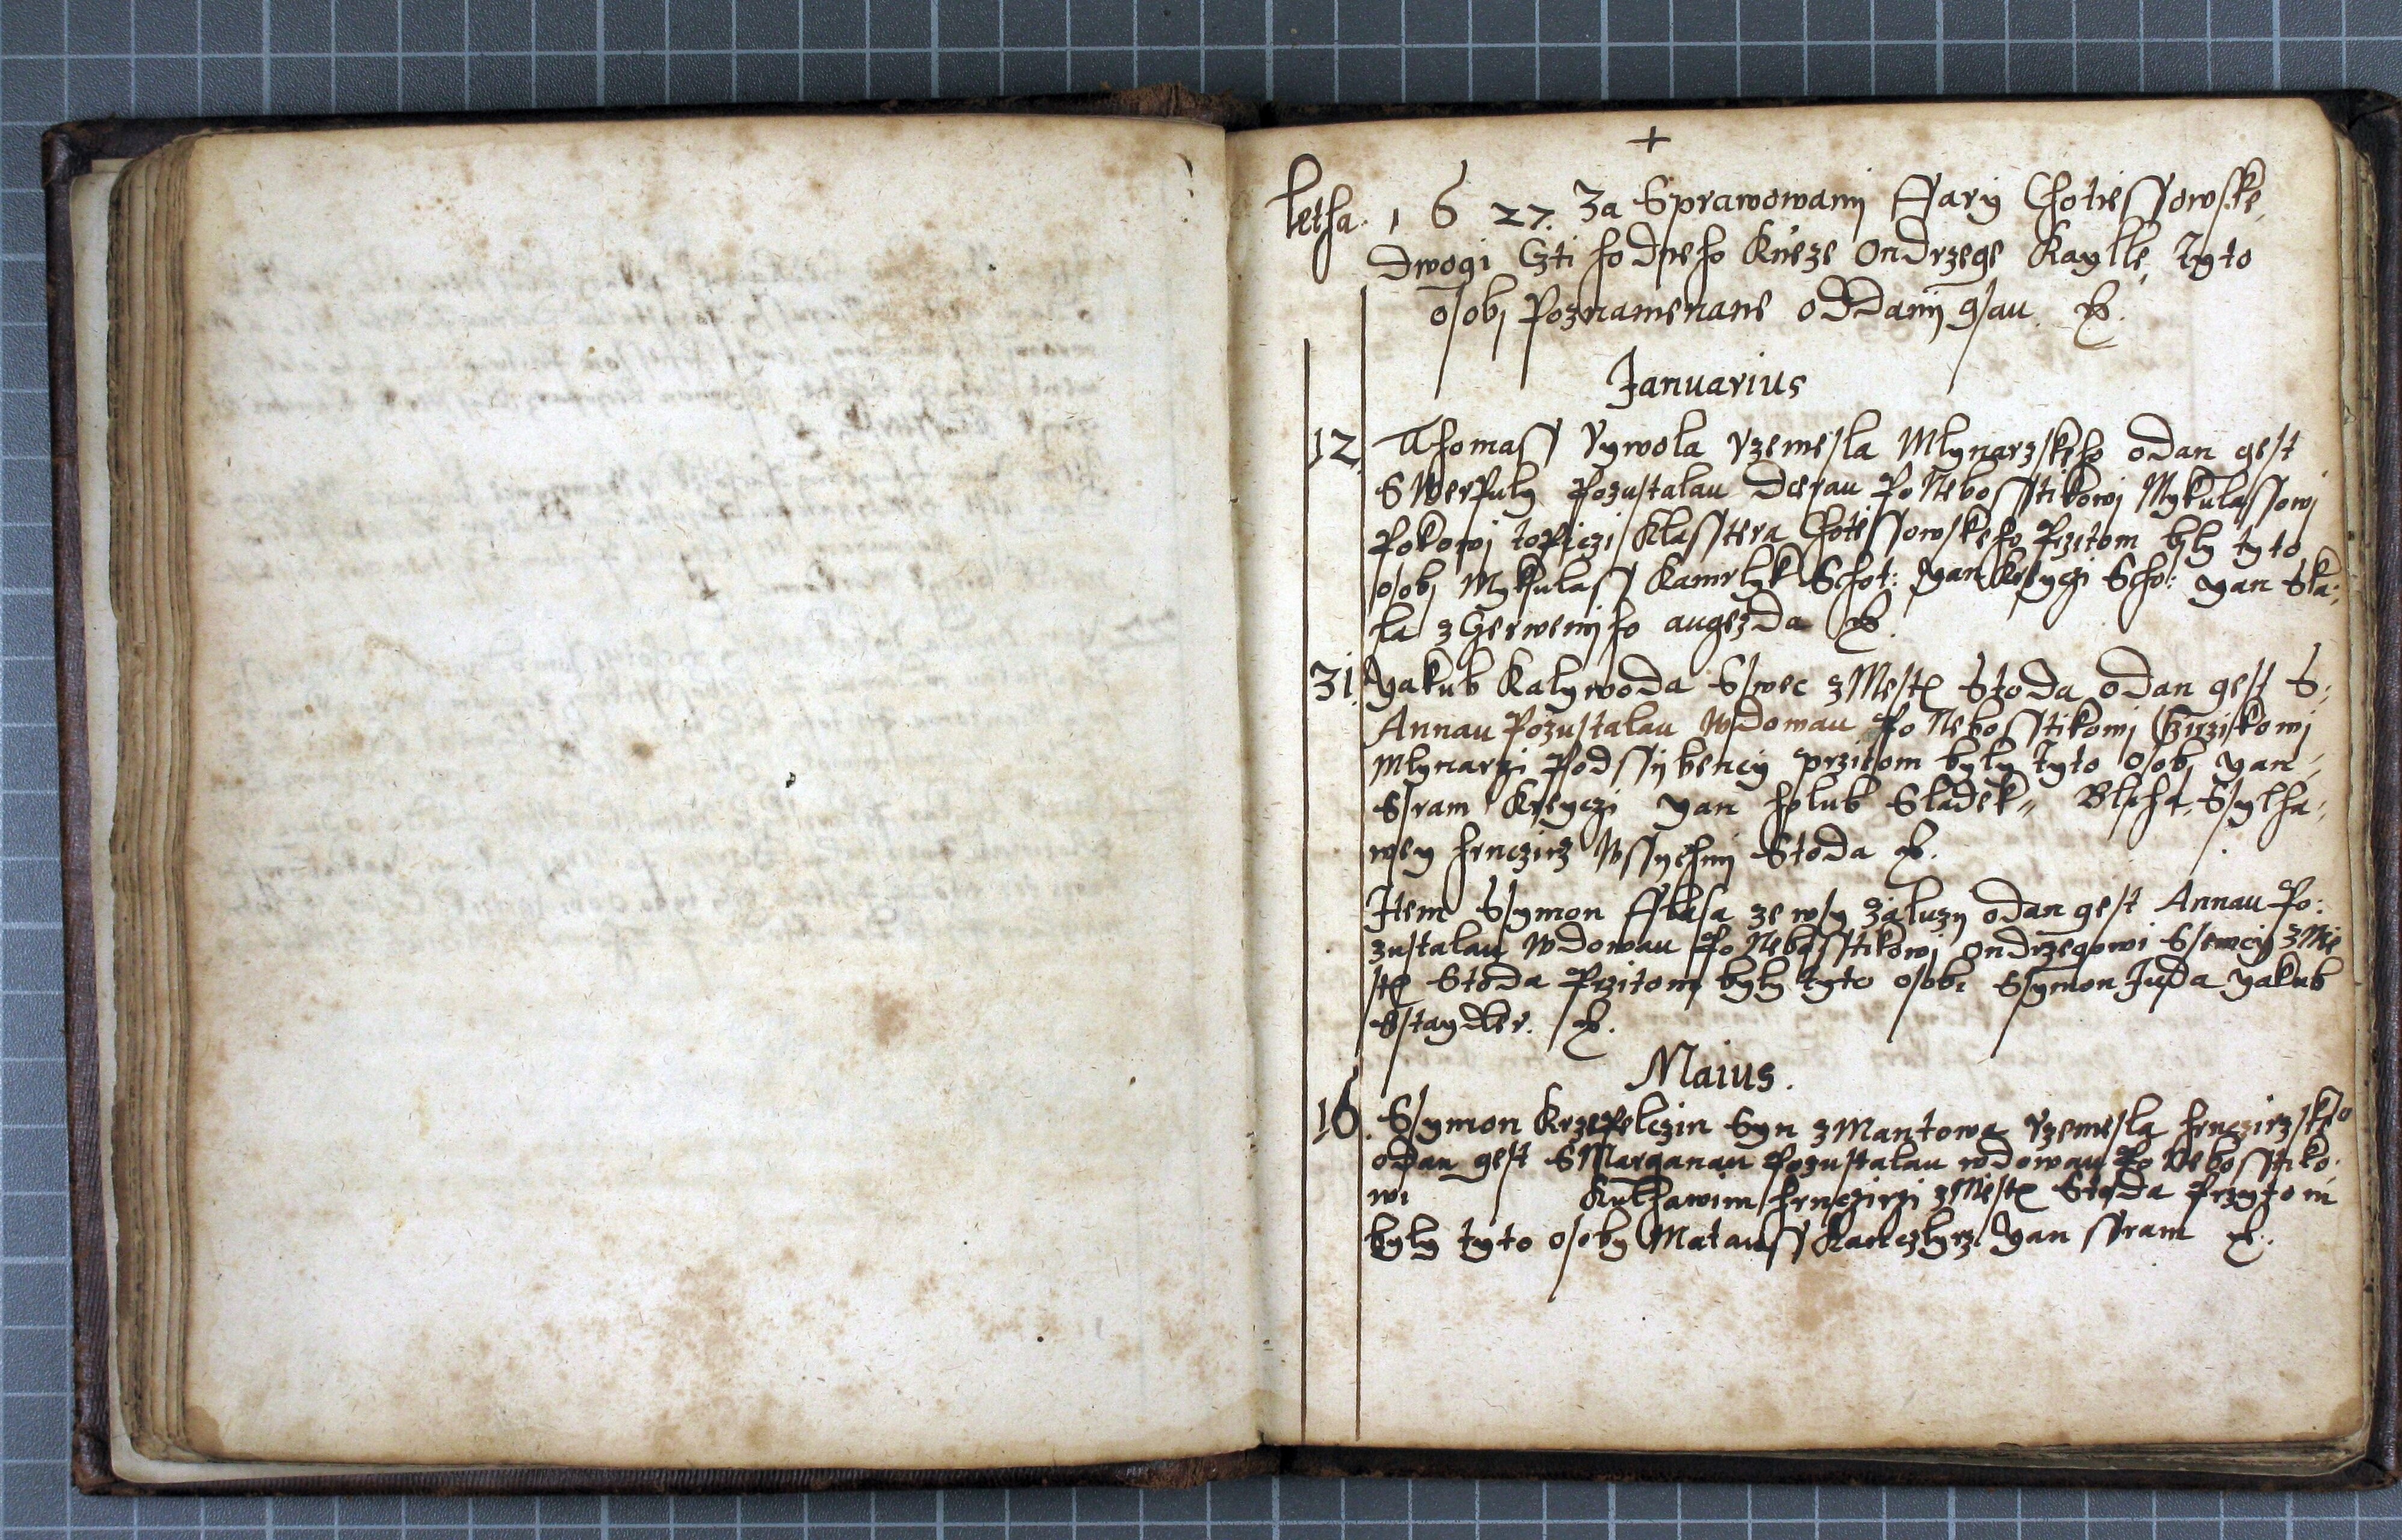 +
Letha 1627. Za Sprawowanj ffary Chotiessowske
Dwogi Czti hodneho Knieze Ondrzege Kaylle tyto
osobj Poznamenane oddanj gsau
Januarius
12 Thomass Vywola rzemesla Mlynarzskeho odan gest
S Werpuly Pozustalau Dcerau Po Nebosstikowj Mykulassowj
Pokowj topiczi Klasstera Chotiessowskeho Przitom byly tyto
osobj Mykulass Kamrlyk Schot: yan Kreyczi Scho: yan Ska:
la z Czerwenjho augezda
31 Yakub Kalywoda Sswec z Mest Stoda odan gest S:
Annau Pozustalau Wdowau Po Nebosstikowj Cziziskowj
Mlynarzi Podssybency przitom byly tyto osobj yan
Ssram Kreyczi yan holub Sladek Ssylha
wey hrnczirz Wssychnj Stoda
Item Ssymon ze wsy Zaluzy odan gest Annau Po:
zustalau Wdowau Po Nebosstikowj Ondrzegowi Ssewcy z Mie
st Stoda Przitom byly tyto osobi Ssymon Juda yakub
Sstaydler.
Maius.
16. Ssymon Krzepelczin Syn z Mantowa rzemesla hrnczirzskeo
odan gest S Marganau Pozustalau wdowau Po Nebosstiko
wi Kulhawim hrnczirzi z Miest Stoda Przytom
byly tyto osoby Matauss Kanczlyrz Yan ssram